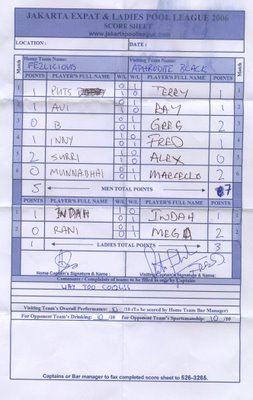 JAKARTA EXPAT & LADIES POOL LEAGUE 2006
SCORE SHEET
www.jakartapoolleague.com
LOCATION : DATE :
Match Home Team Name: Visiting Team Name: Match
FEZLICIOUS APHRODITE BLACK
POINTS PLAYER'S FULL NAME W/L W/L PLAYER'S FULL NAME POINTS
1 1 PUTS TERRY 1
1 AVI RAY 1
0 B GREG 2
1 INNY FRED 1
2 SURRI ALEX 0
0 MUNNABHAI MARCELLO 2
5 MEN TOTAL POINTS 7
POINTS PLAYER'S FULL NAME W/L W/L PLAYER'S FULL NAME POINTS
1 INDAH INDAH 1
0 RANI MEGA 2
1 LADIES TOTAL POINTS 3
Home Captain's Signature & Name : Visiting Captain's Signature & Name :
FRED
Comments / Complaints of teams to be filled in only by Captains
WAY TOO
Visiting Team's Overall Performance: /10 (To be scored by Home Team Bar Manager)
For Opponent Team's Drinking: /10 for Opponent Team's Sportsmanship: 10 /10
Captains or Bar manager to fax completed score sheet to 526-3265.